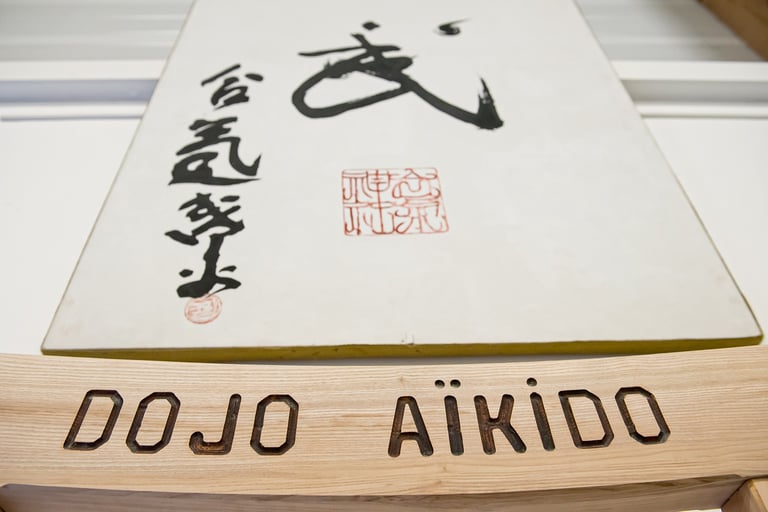 武
合氣
合氣
神社
DOJO AÏKIDO